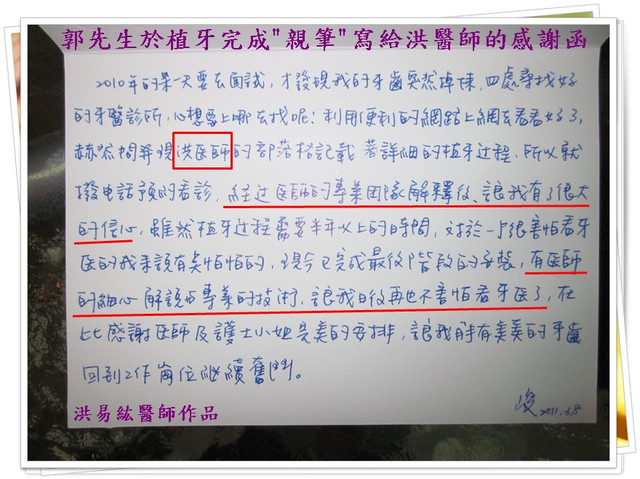 郭先生於植牙完成"親筆"寫給洪醫師的感謝函
2010年的某一天要去面試,才發現我的牙齒突然掉下來,四處尋找好
的牙醫診所,心想要上哪去找呢?利用便利的網路上網去看看好了,
赫然間發現洪医師的部落格記載著詳細的植牙过程,所以就
撥電話預約看診,経过医師的專業團隊解釋後,讓我有了很大
的信心,雖然植牙过程需要半年以上的時間,对於一个很害怕看牙
医的我來說有点怕怕的,現今已完成最後階段的安裝,有医師
的細心解說与專業的技術,讓我日後再也不害怕看牙医了,在
此感謝医師及護士小姐吳真的安排,讓我能擁有美美的牙齒
回到工作崗位繼續奮鬥。
2011.2.8
洪易紘醫師作品